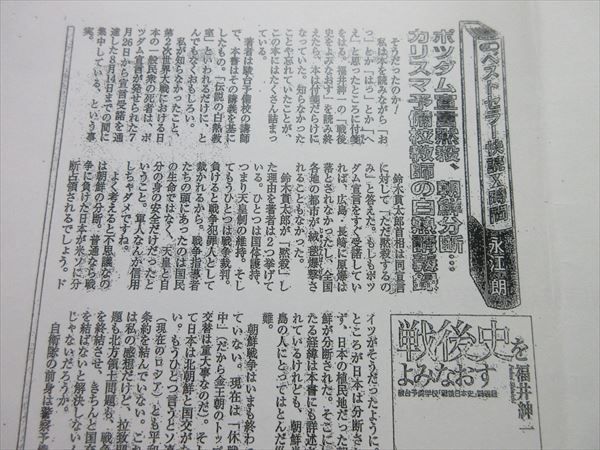 のベストセラー
永江 朗
ポツダム宣言黙殺、朝鮮分断…
カリスマ予備校教師の白熱講義録
そうだったのか!
私は本を読みながら「お
っ」とか「はっ」とか「へ
えっ」と思ったところに付箋
をはる。福井紳一の『戦後
史をよみなおす』を読み終
えたら、本は付箋だらけに
なっていた。知らなかった
ことや忘れていたことが、
この本にはたくさん詰まっ
ている。
著者は駿台予備校の講師
で、本書はその講義を基に
したもの。「伝説の白熱教
室」といわれるだけに、と
んでもなくおもしろい。
私が知らなかったこと。
第2次世界大戦における日
本の一般民衆の死者は、ポ
ツダム宣言が発せられた7
月26日から宣言受諾を通
達した8月14日までの間に
集中している、という事
実。
鈴木貫太郎首相は同宣言
に対して「ただ黙殺するの
み」と答えた。もしもポツ
ダム宣言をすぐ受諾してい
れば、広島・長崎に原爆は
落とされなかったし、全国
各地の都市が絨毯爆撃さ
れることもなかった。
鈴木貫太郎が「黙殺」し
た理由を著者は2つ挙げて
いる。ひとつは国体護持、
つまり天皇制の維持。そし
てもうひとつは戦争裁判。
負けると戦争犯罪人として
裁かれるから。戦争指導者
たちの頭にあったのは国民
の生命ではなく、天皇と自
分の身の安全だけだったと
いうこと。軍人なんか信用
しちゃダメですね。
よく考えると不思議なの
は朝鮮の分断。普通なら戦
争に負けた日本が米ソに分
断占領されるでしょう。ド
イツがそうだったように。
ところが日本は分断され
ず、日本の植民地だった朝
鮮が分断された。そこにい
たる経緯は本書にも詳述さ
れているけれども、朝鮮半
島の人にとってはとんだ災
難。
朝鮮戦争はいまも終わっ
ていない。現在は「休戦
中」だから金王朝のトップ
交替は重大事なのだ。そし
て日本は北朝鮮と国交がな
い。もうひとつ言うとソ連
(現在のロシア)とも平和
条約を結んでいない。これ
は私の感想だけど、拉致問
題も北方領土問題も、戦争
を終結させ、きちんと国交
を結ばないと解決しないん
じゃないだろうか。
自衛隊の前身は警察予備
戦後史を
よみなおす
福井紳一
駿台予備学校「戦後日本史」講義録